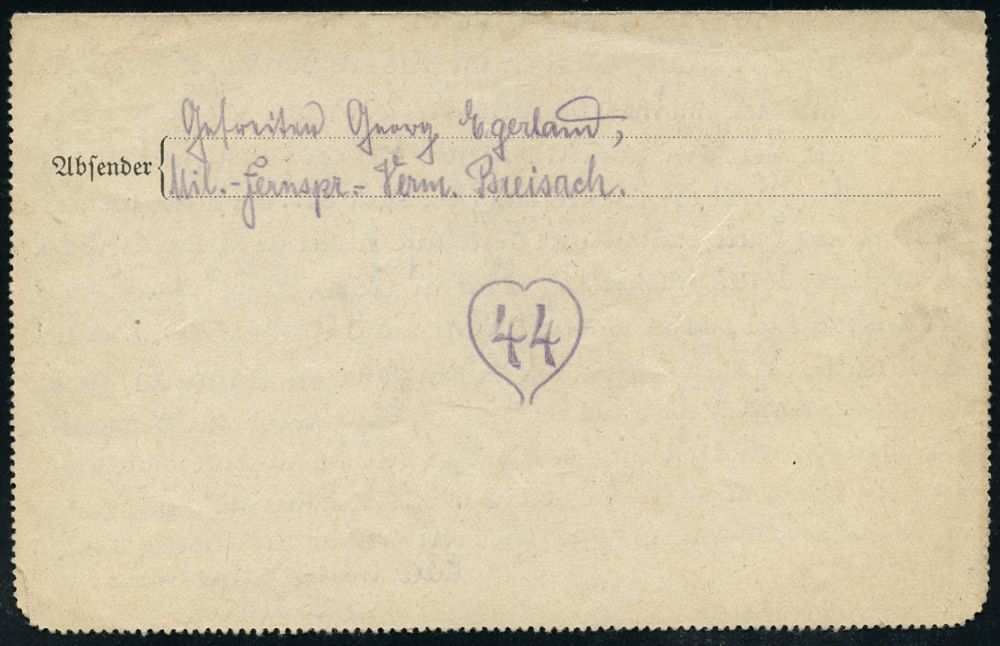 Gefreiten Georg Egerland,
Absender Mil.-Fernspr.- Verm. Breisach.
44